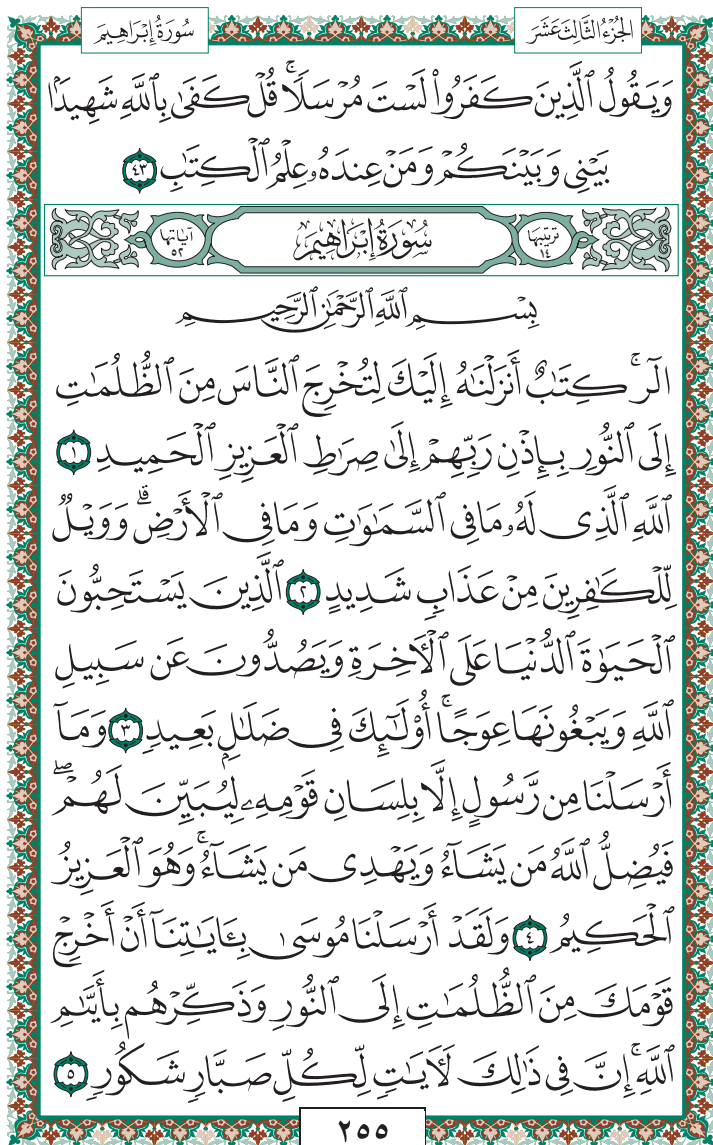 الجُزْءُ الثَّالِثَ عَشَرَ
سُورَةُ إِبْرَاهِيم
وَيَقُولُ ٱلَّذِينَ كَفَرُواْ لَسْتَ مُرْسَلًاۚ قُلْ كَفَىٰ بِٱللَّهِ شَهِيدَۢا
بَيْنِى وَبَيْنَكُمْ وَمَنْ عِندَهُۥ عِلْمُ ٱلْكِتَٰبِ ٤٣
ترتيبها ١٤ سُورَةُ إِبْرَاهِيمَ آياتها ٥٢
بِسْمِ ٱللَّهِ ٱلرَّحْمَٰنِ ٱلرَّحِيمِ
الٓرۚ كِتَٰبٌ أَنزَلْنَٰهُ إِلَيْكَ لِتُخْرِجَ ٱلنَّاسَ مِنَ ٱلظُّلُمَٰتِ
إِلَى ٱلنُّورِ بِإِذْنِ رَبِّهِمْ إِلَىٰ صِرَٰطِ ٱلْعَزِيزِ ٱلْحَمِيدِ ١
ٱللَّهِ ٱلَّذِى لَهُۥ مَا فِى ٱلسَّمَٰوَٰتِ وَمَا فِى ٱلْأَرْضِۗ وَوَيْلٌ
لِّلْكَٰفِرِينَ مِنْ عَذَابٍ شَدِيدٍ ٢ ٱلَّذِينَ يَسْتَحِبُّونَ
ٱلْحَيَوٰةَ ٱلدُّنْيَا عَلَى ٱلْأَخِرَةِ وَيَصُدُّونَ عَن سَبِيلِ
ٱللَّهِ وَيَبْغُونَهَا عِوَجًاۚ أُوْلَٰٓئِكَ فِى ضَلَٰلٍۭ بَعِيدٍ ٣ وَمَآ
أَرْسَلْنَا مِن رَّسُولٍ إِلَّا بِلِسَانِ قَوْمِهِۦ لِيُبَيِّنَ لَهُمْۖ
فَيُضِلُّ ٱللَّهُ مَن يَشَآءُ وَيَهْدِى مَن يَشَآءُۚ وَهُوَ ٱلْعَزِيزُ
ٱلْحَكِيمُ ٤ وَلَقَدْ أَرْسَلْنَا مُوسَىٰ بِـَٔايَٰتِنَآ أَنْ أَخْرِجْ
قَوْمَكَ مِنَ ٱلظُّلُمَٰتِ إِلَى ٱلنُّورِ وَذَكِّرْهُم بِأَيَّىٰمِ
ٱللَّهِۚ إِنَّ فِى ذَٰلِكَ لَأَيَٰتٍ لِّكُلِّ صَبَّارٍ شَكُورٍ ٥
٢٥٥